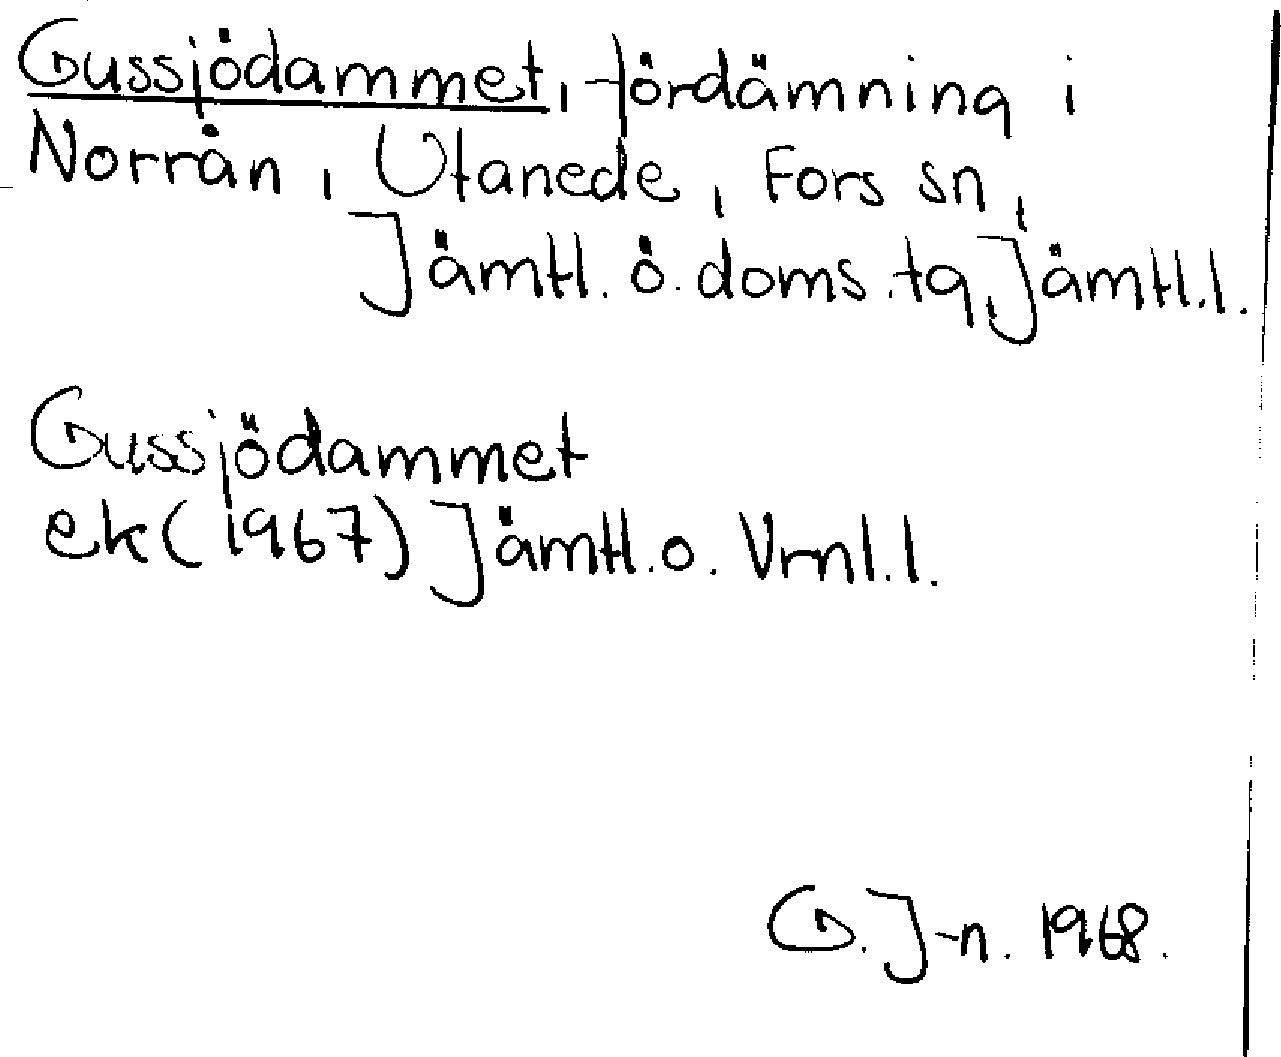 Gussjödammet, fördämning i
Norrån, Utanede, Fors sn,
Jämtl. ö. doms. tg, Jämtl. l.
Gussjödammet
ek (1967) Jämtl. o. Vrnl. l.
G. J-n. 1968.